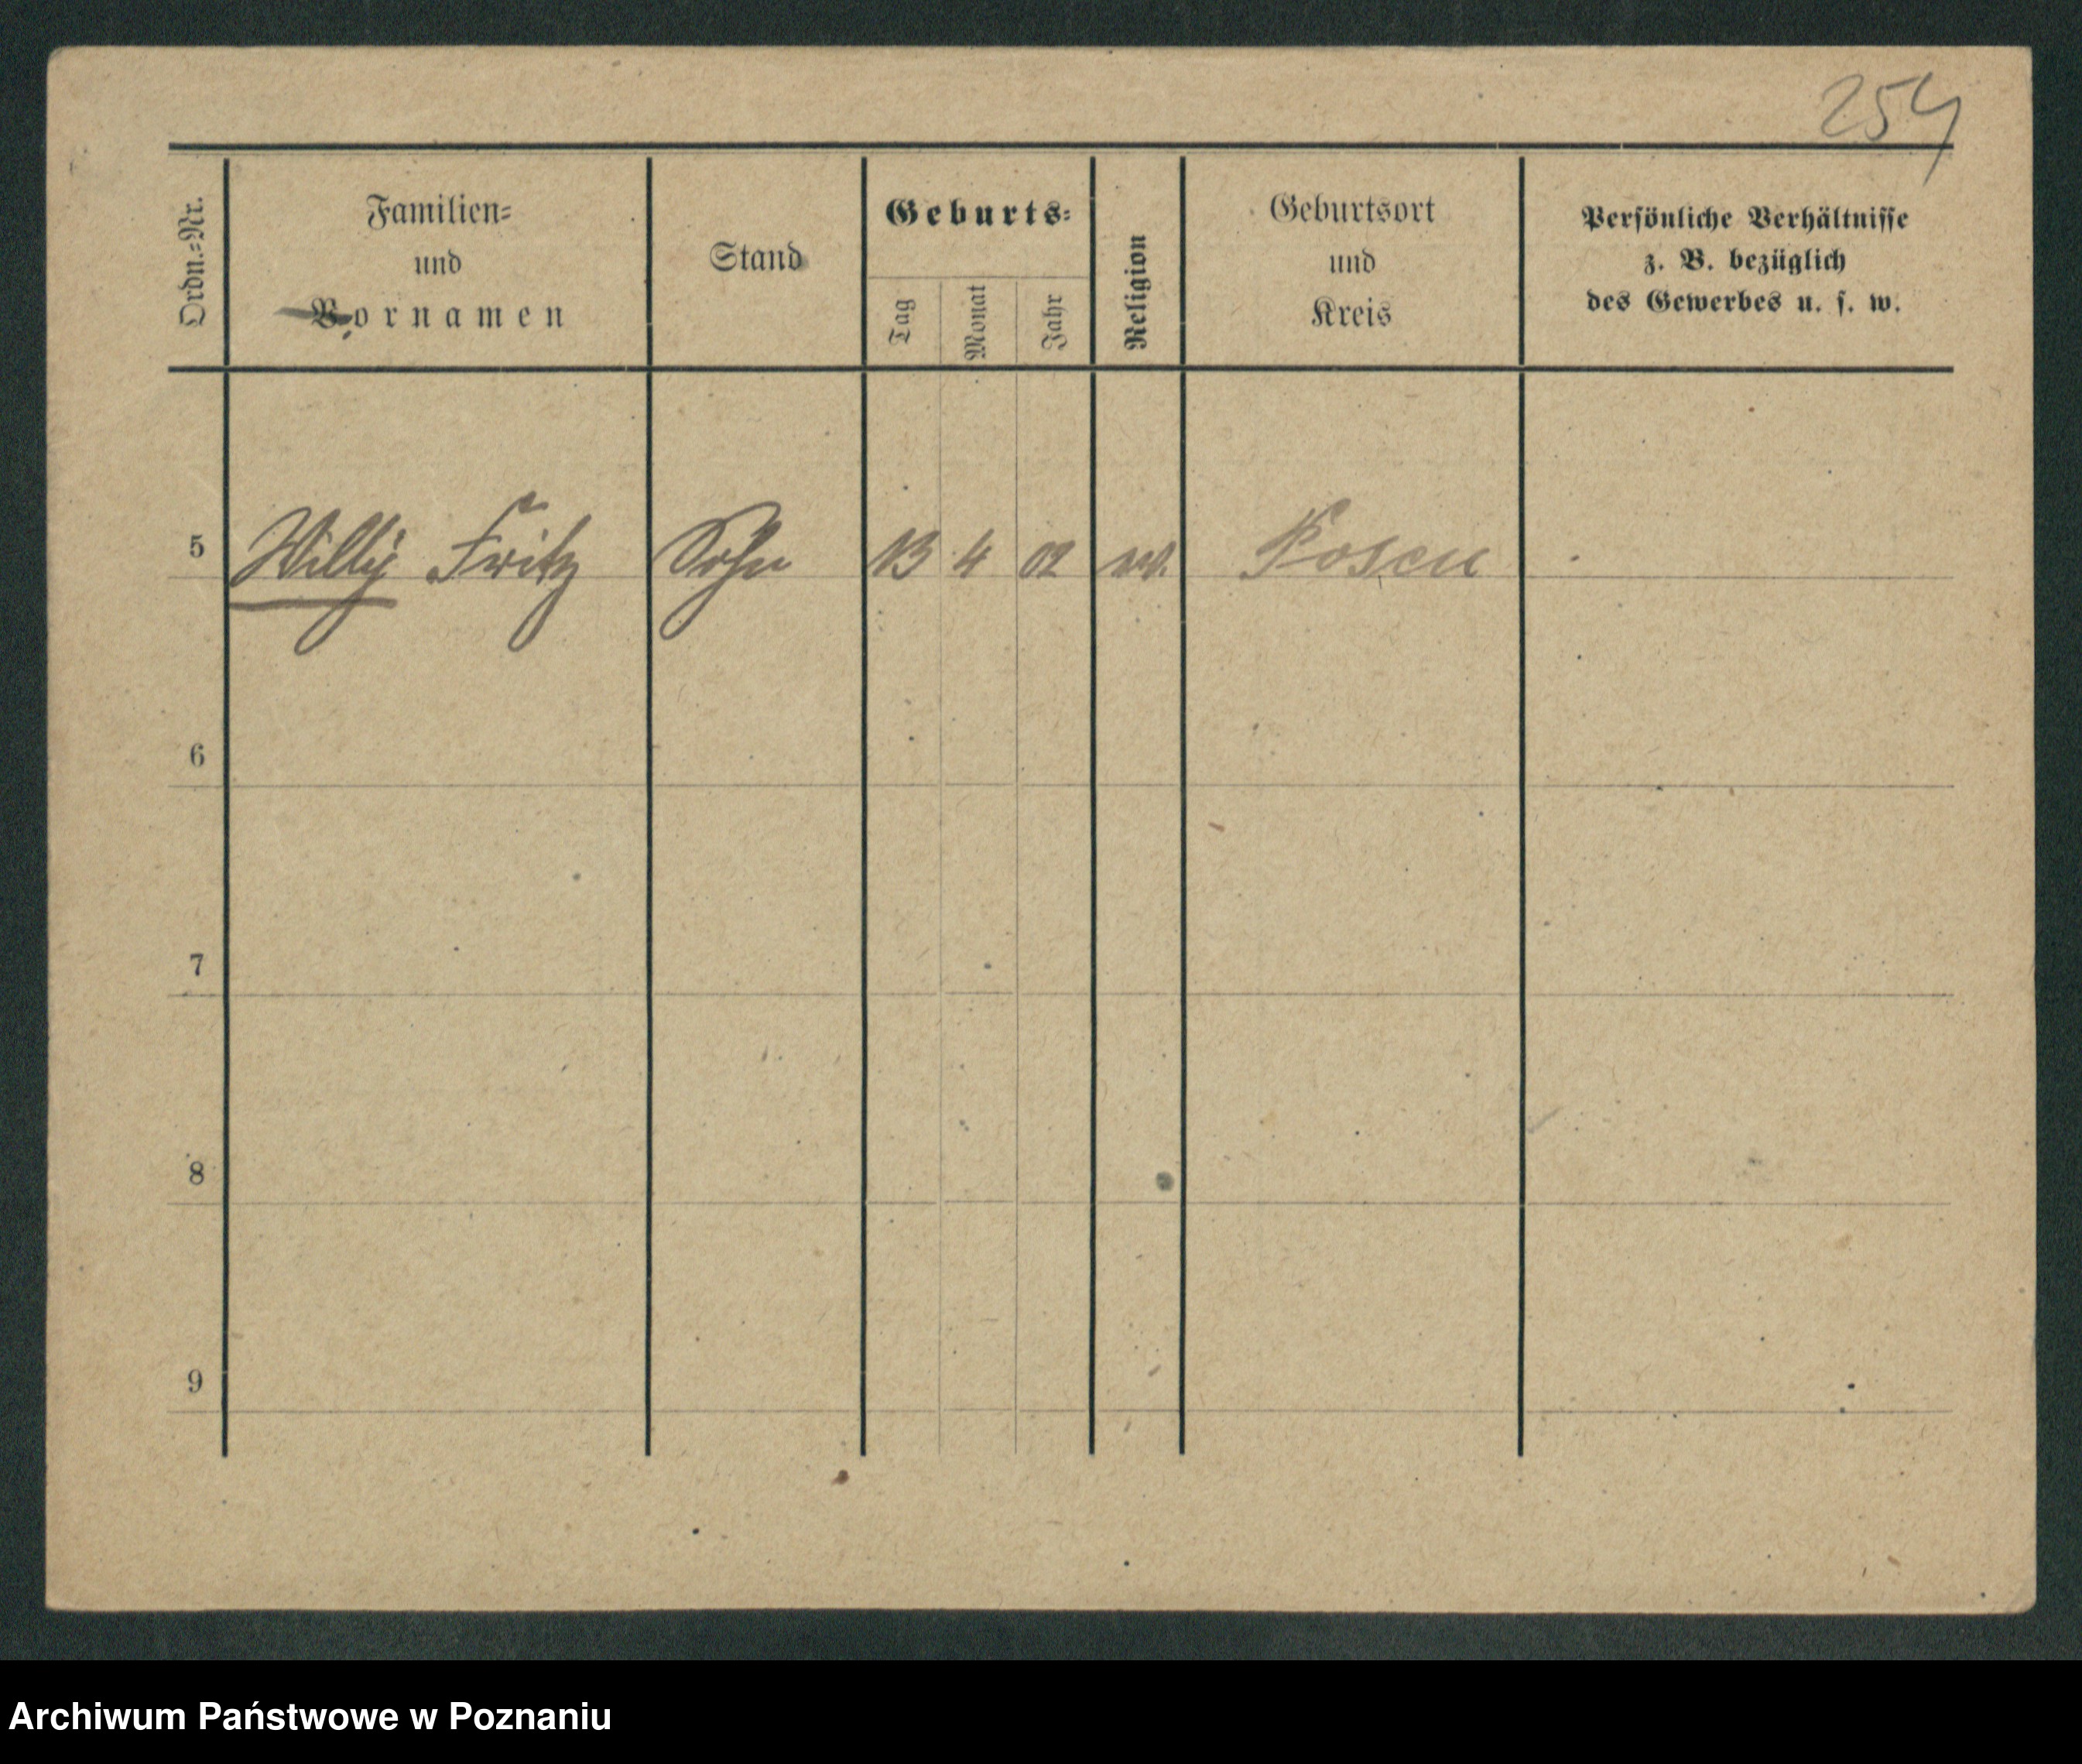 254
Ordn.=Nr.
Familien=
und
Vornamen
Stand
Geburts=
Tag
Monat
Jahr
Religion
Geburtsort
und
Kreis
Persönliche Verhältnisse
z. B. bezüglich
des Gewerbes u. s. w.
5 Willy Fritz Sohn 13 4 02 Posen
6
7
8
9
Archiwum Państwowe w Poznaniu